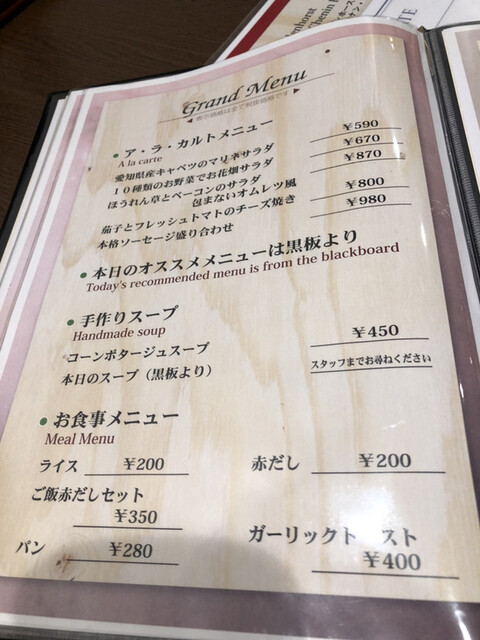 mhorst
Chenin
TE
Grand Menu
◀ 表示価格は全て税抜価格です ▶
● ア・ラ・カルトメニュー
A la carte
愛知県産キャベツのマリネサラダ ¥590
10種類のお野菜でお花畑サラダ ¥670
ほうれん草とベーコンのサラダ ¥870
包まないオムレツ風
茄子とフレッシュトマトのチーズ焼き ¥800
本格ソーセージ盛り合わせ ¥980
● 本日のオススメメニューは黒板より
Today's recommended menu is from the blackboard
● 手作りスープ
Handmade soup
コーンポタージュスープ ¥450
本日のスープ（黒板より） スタッフまでお尋ねください
● お食事メニュー
Meal Menu
ライス ¥200 赤だし ¥200
ご飯赤だしセット
¥350
パン ¥280
ガーリックト スト
¥400